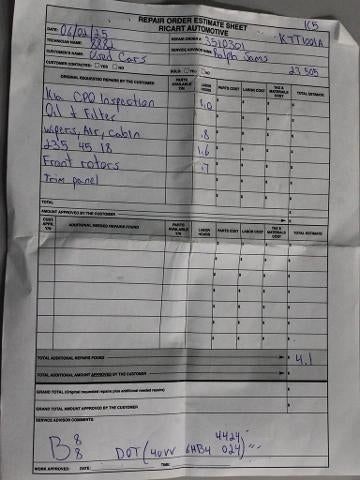 REPAIR ORDER ESTIMATE SHEET K5
RICART AUTOMOTIVE
DATE: 06/02/25 REPAIR ORDER # 3510301 KTT1001A
TECHNICIAN NAME 8882 SERVICE ADVISOR NAME Ralph Sams
CUSTOMER'S NAME: Used Cars
CUSTOMER CONTACTED: YES NO SOLD: YES NO 23505
ORIGINAL REQUESTED REPAIRS BY THE CUSTOMER PARTS AVAILABLE Y/N LABOR HOURS PARTS COST LABOR COST TAX & MATERIALS COST TOTAL ESTIMATE
Kia CPO Inspection 1.0
Oil & Filter
wipers, Air, cabin .8
235 45 18 1.6
Front rotors .7
Trim panel
TOTAL
AMOUNT APPROVED BY THE CUSTOMER
CUST. APPR. Y/N ADDITIONAL NEEDED REPAIRS FOUND PARTS AVAILABLE Y/N LABOR HOURS PARTS COST LABOR COST TAX & MATERIALS COST TOTAL ESTIMATE
TOTAL ADDITIONAL REPAIRS FOUND $ 4.1
TOTAL ADDITIONAL AMOUNT APPROVED BY THE CUSTOMER $
GRAND TOTAL (Original requested repairs plus additional needed repairs) $
GRAND TOTAL AMOUNT APPROVED BY THE CUSTOMER $
SERVICE ADVISOR COMMENTS:
B 8 4424
8 DOT (4UVV 6HB4 024)
WORK APPROVED: DATE: TIME: